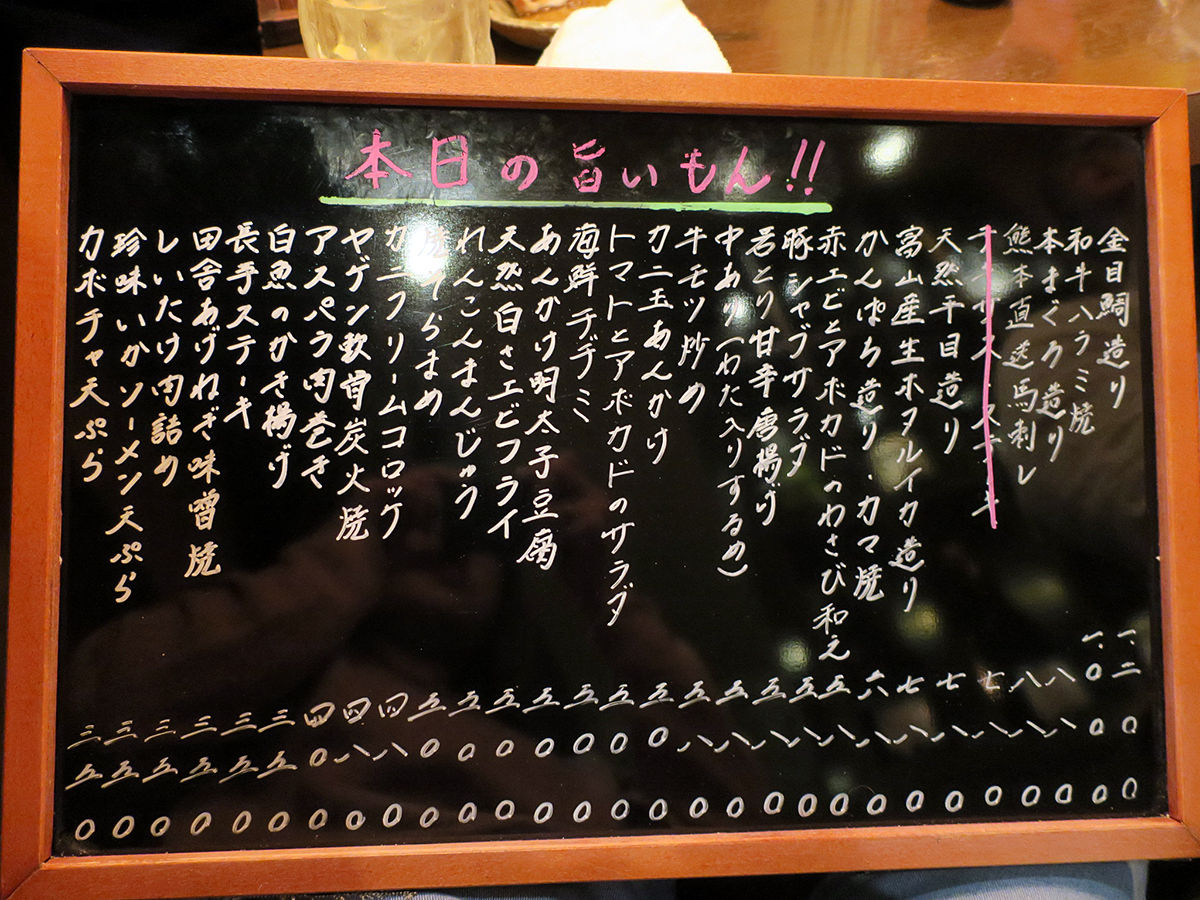 本日の旨いもん!!
金目鯛造り 一、二〇〇
和牛ハラミ焼 一、〇〇〇
本まぐろ造り 八八〇
熊本直送馬刺し 八八〇
七八〇
天然平目造り 七八〇
富山産生ホタルイカ造り 七八〇
かんぱち造り・カマ焼 六八〇
赤エビとアボカドのわさび和え 五八〇
豚シャブサラダ 五八〇
若とり甘辛唐揚げ 五八〇
中あり(わた入りするめ) 五八〇
牛モツ炒め 五八〇
カニ玉あんかけ 五〇〇
トマトとアボカドのサラダ 五〇〇
海鮮チヂミ 五〇〇
あんかけ明太子豆腐 五〇〇
天然白さエビフライ 五〇〇
れんこんまんじゅう 五〇〇
焼そらまめ 五〇〇
カニクリームコロッケ 四八〇
ヤゲン軟骨炭火焼 四八〇
アスパラ肉巻き 四〇〇
白魚のかき揚げ 三五〇
長芋ステーキ 三五〇
田舎あげねぎ味噌焼 三五〇
しいたけ肉詰め 三五〇
珍味いかソーメン天ぷら 三五〇
カボチャ天ぷら 三五〇